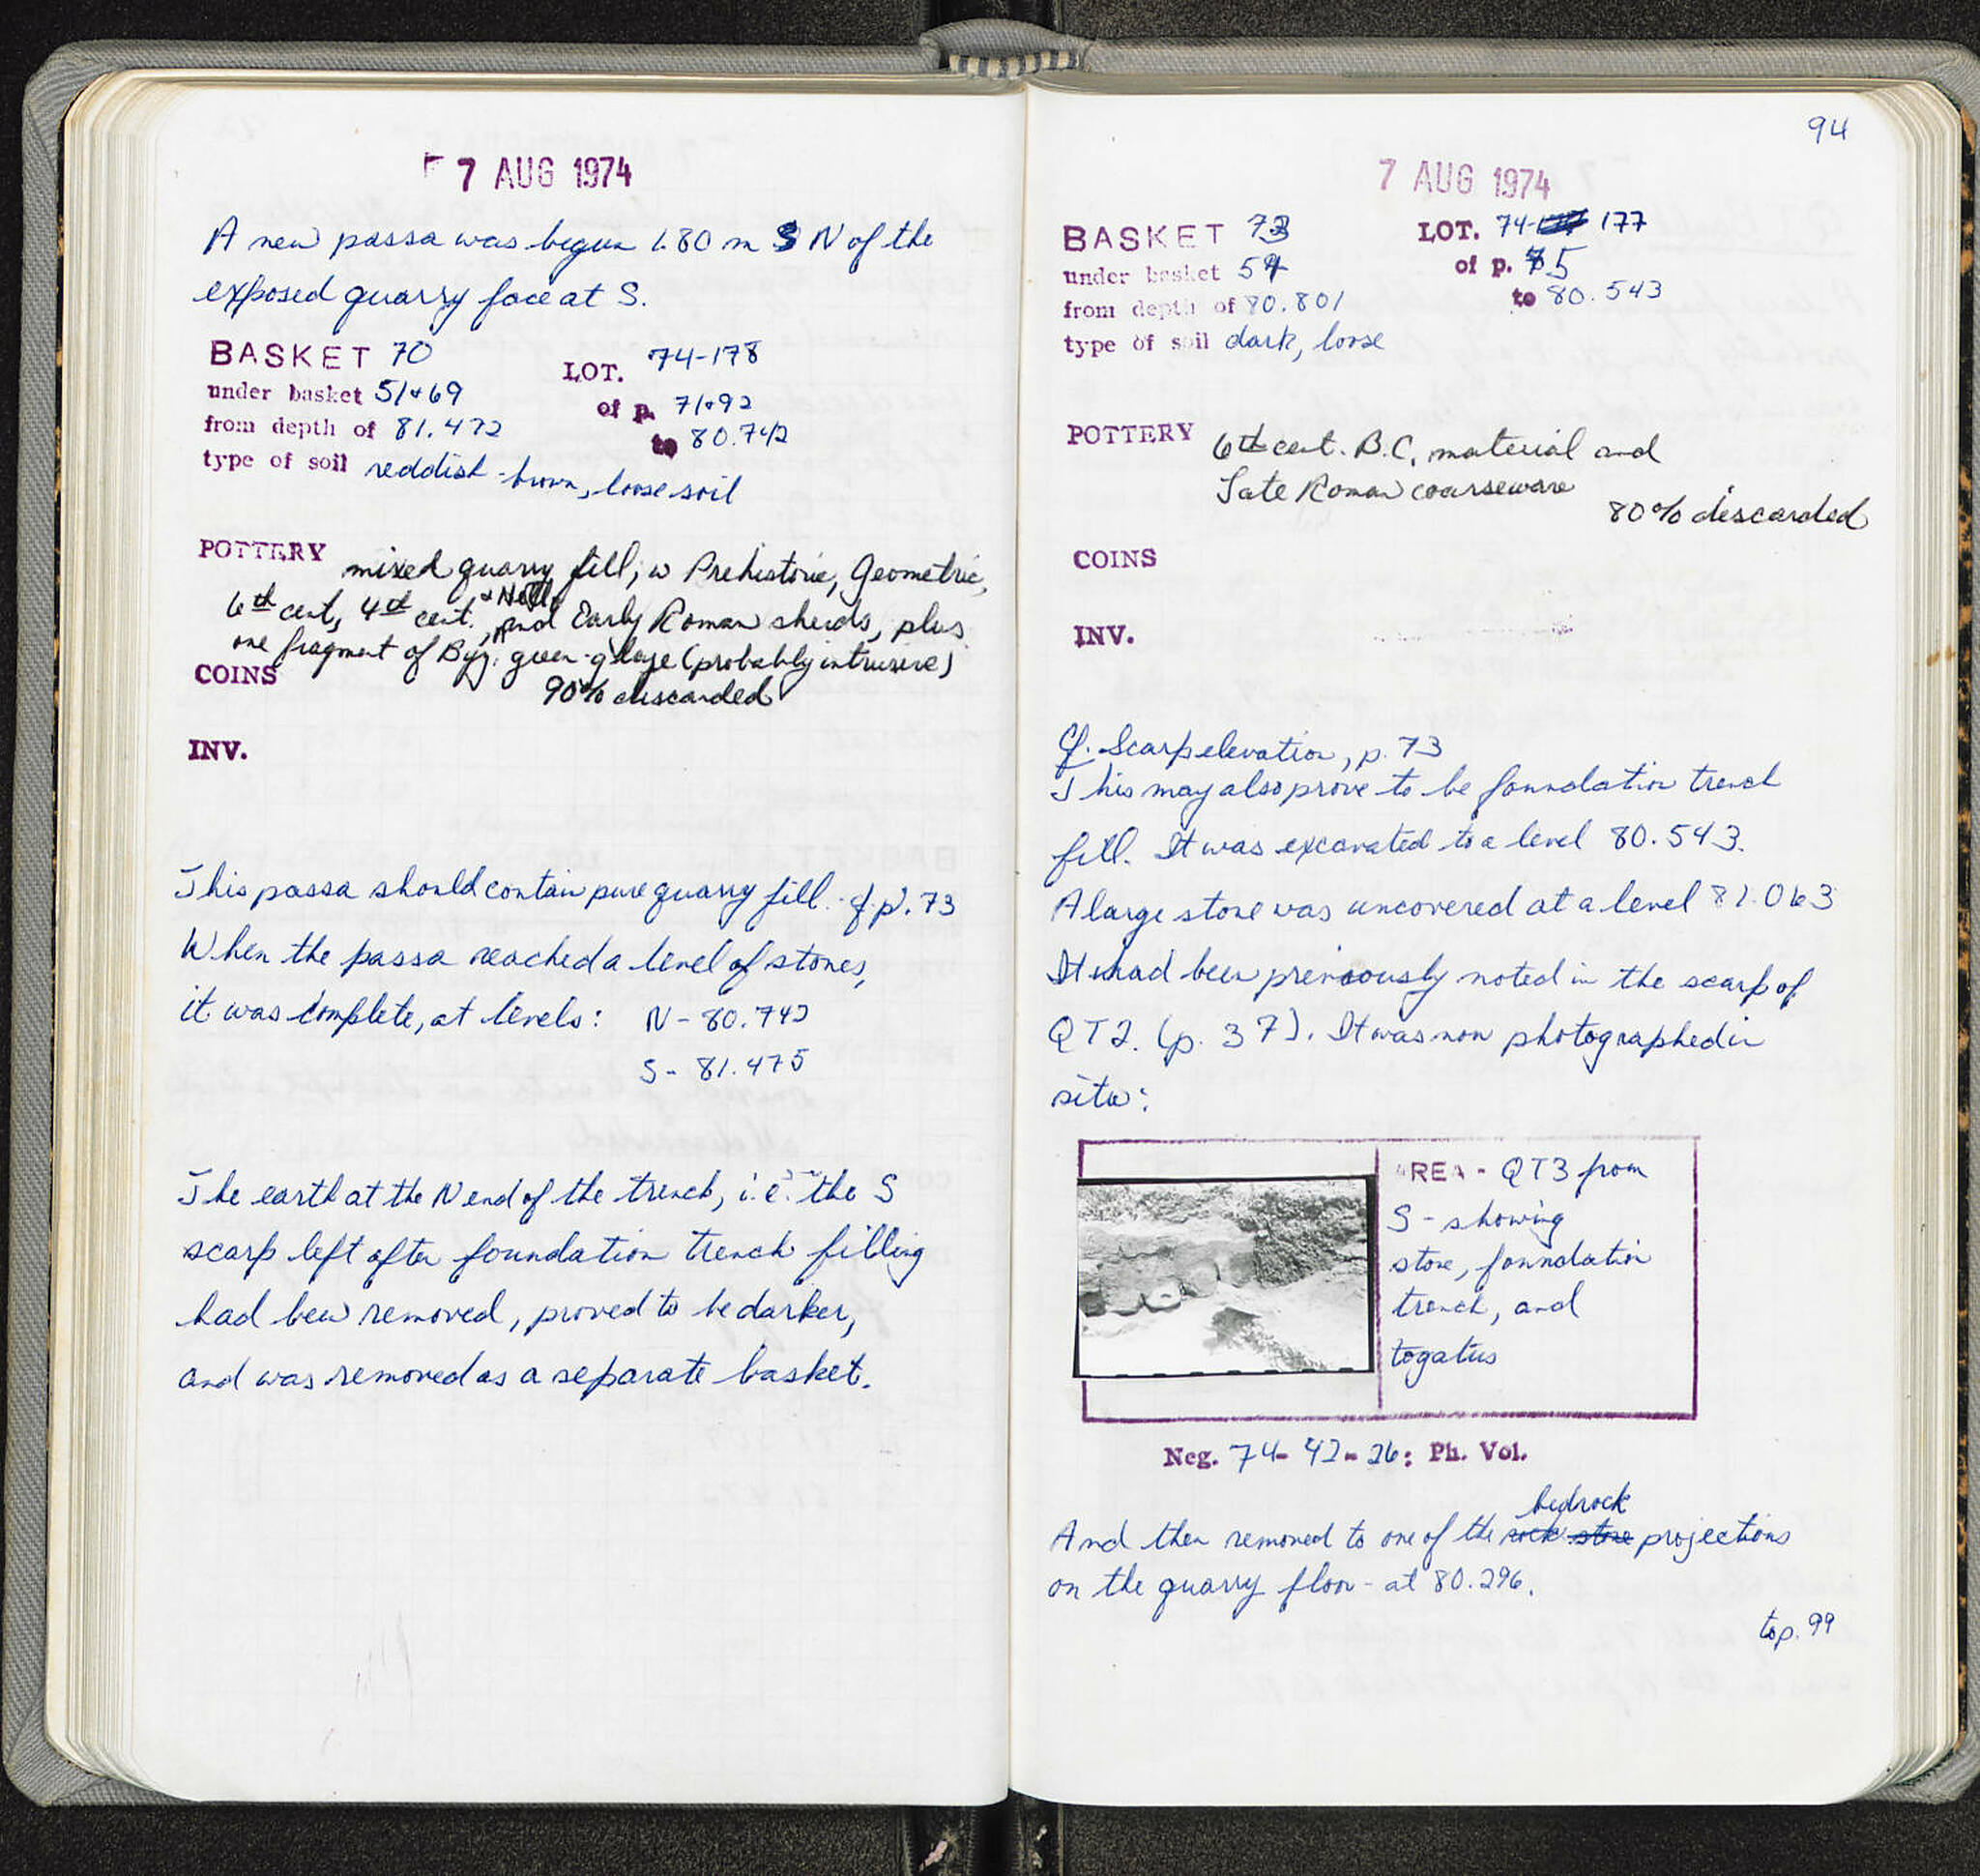 7 AUG 1974
A new passa was begun 1.80 m N of the
exposed quarry face at S.
BASKET 70 LOT. 74-178
under basket 51+69 of p. 71+92
from depth of 81.472 to 80.742
type of soil reddish-brown, loose soil
POTTERY mixed quarry fill, w Prehistoric, Geometric,
6th cent, 4th cent. and Early Roman sherds, plus
one fragment of Byz. green-glaze (probably intrusive)
COINS 90% discarded
INV.
This passa should contain pure quarry fill. cf. p. 73
When the passa reached a level of stones,
it was complete, at levels: N - 80.742
S - 81.475
The earth at the N end of the trench, i.e. the S
scarp left after foundation trench filling
had been removed, proved to be darker,
and was removed as a separate basket.
94
7 AUG 1974
BASKET 73 LOT. 74- 177
under basket 54 of p. 75
from depth of 80.801 to 80.543
type of soil dark, loose
POTTERY 6th cent. B.C. material and
Late Roman coarseware
80% discarded
COINS
INV.
Cf. Scarp elevation, p. 73
This may also prove to be foundation trench
fill. It was excavated to a level 80.543.
A large stone was uncovered at a level 81.063
It had been previously noted in the scarp of
QT2. (p. 37). It was now photographed in
situ:
AREA - QT3 from
S - showing
stone, foundation
trench, and
togatus
Neg. 74-42-26: Ph. Vol.
bedrock
And then removed to one of the rock stone projections
on the quarry floor - at 80.296.
to p. 99